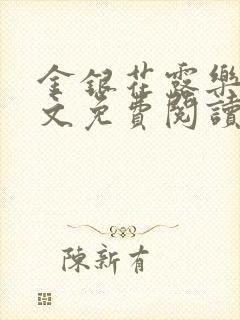 金銀花露樂
文免費閱讀
陳新有